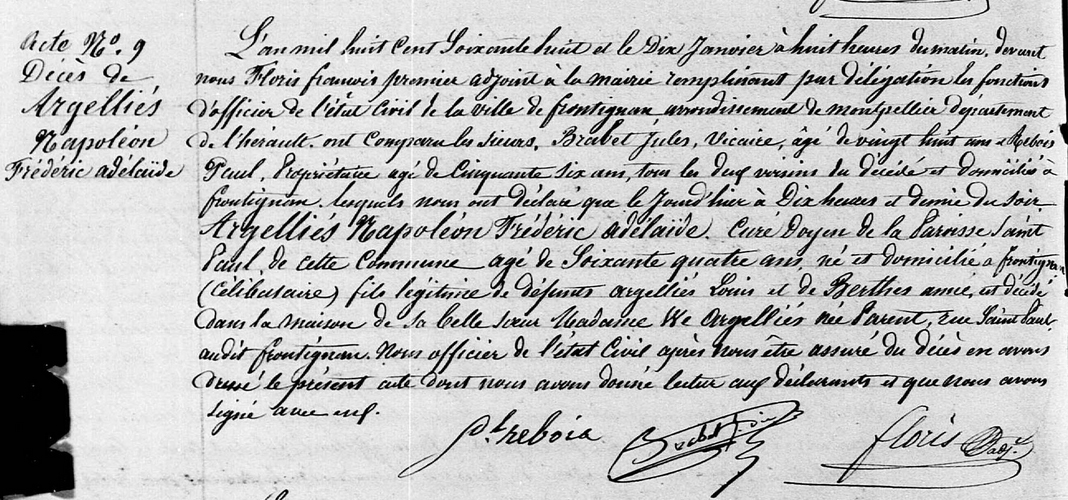 Acte No. 9
Décès de
Argelliés
Napoléon
Frédéric adélaïde
L'an mil huit Cent Soixante huit et le Dix Janvier à huit heures du matin, devant
nous Floris françois premier adjoint à la mairie remplissant par délégation les fonctions
d'officier de l'état Civil de la ville de frontignan, arrondissement de montpellier département
de l'hérault. ont Comparu les sieurs, Bravet Jules, Vicaire, âgé de vingt huit ans et Rebois
Paul, Propriétaire agé de Cinquante six ans, tous les deux voisins du décédé et domiciliés à
frontignan. lesquels nous ont déclaré que le Jourd'hier à Dix heures et demie du soir
Argelliés Napoléon Frédéric adélaïde. Curé Doyen de la Paroisse Saint
Paul, de cette Commune agé de Soixante quatre ans, né et domicilié à frontignan
(Célibataire) fils légitime de défunts argelliés Louis et de Berthes anne, est décédé
dans la maison de sa belle sœur Madame Ve Argelliés née Parent, rue Saint Paul,
audit frontignan. Nous officier de l'état Civil après nous être assuré du décès en avons
dressé le présent acte dont nous avons donné lectur aux déclarants et que nous avons
signé avec eux.
floris adj.